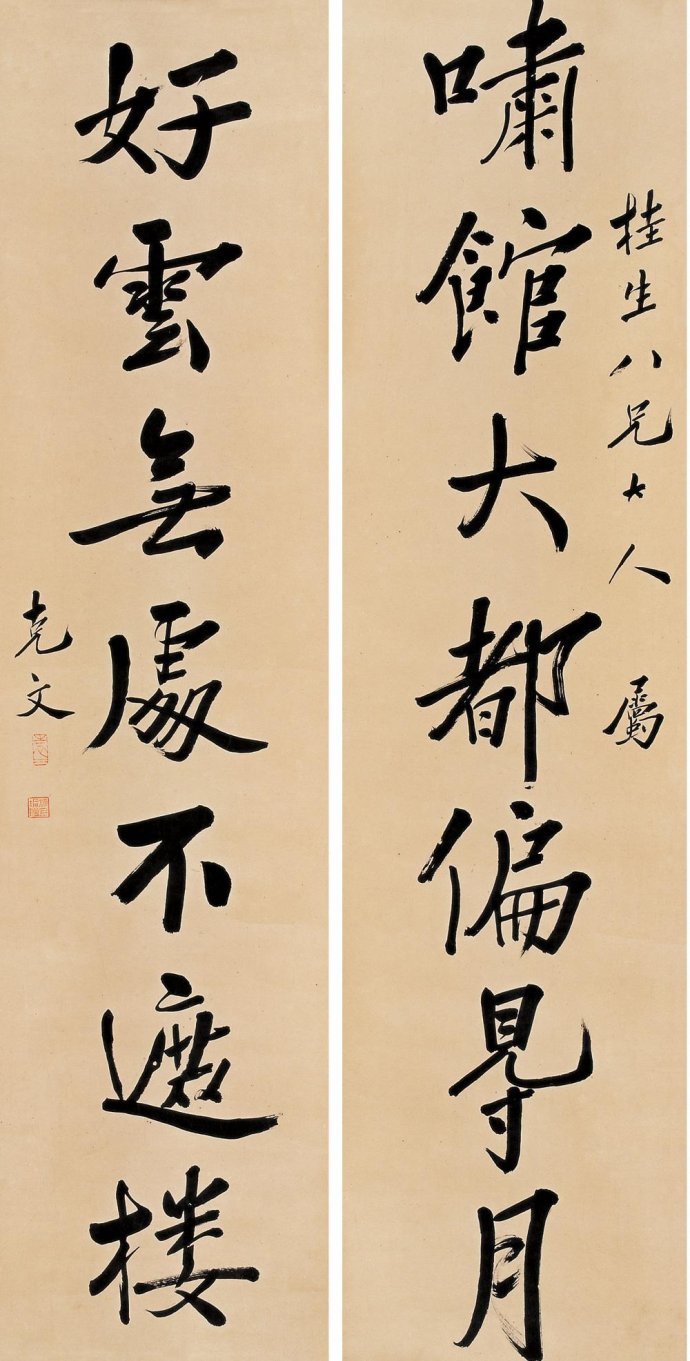 桂生八兄大人 屬
嘯館大都偏㝵月
好雲無處不遮楼
克文